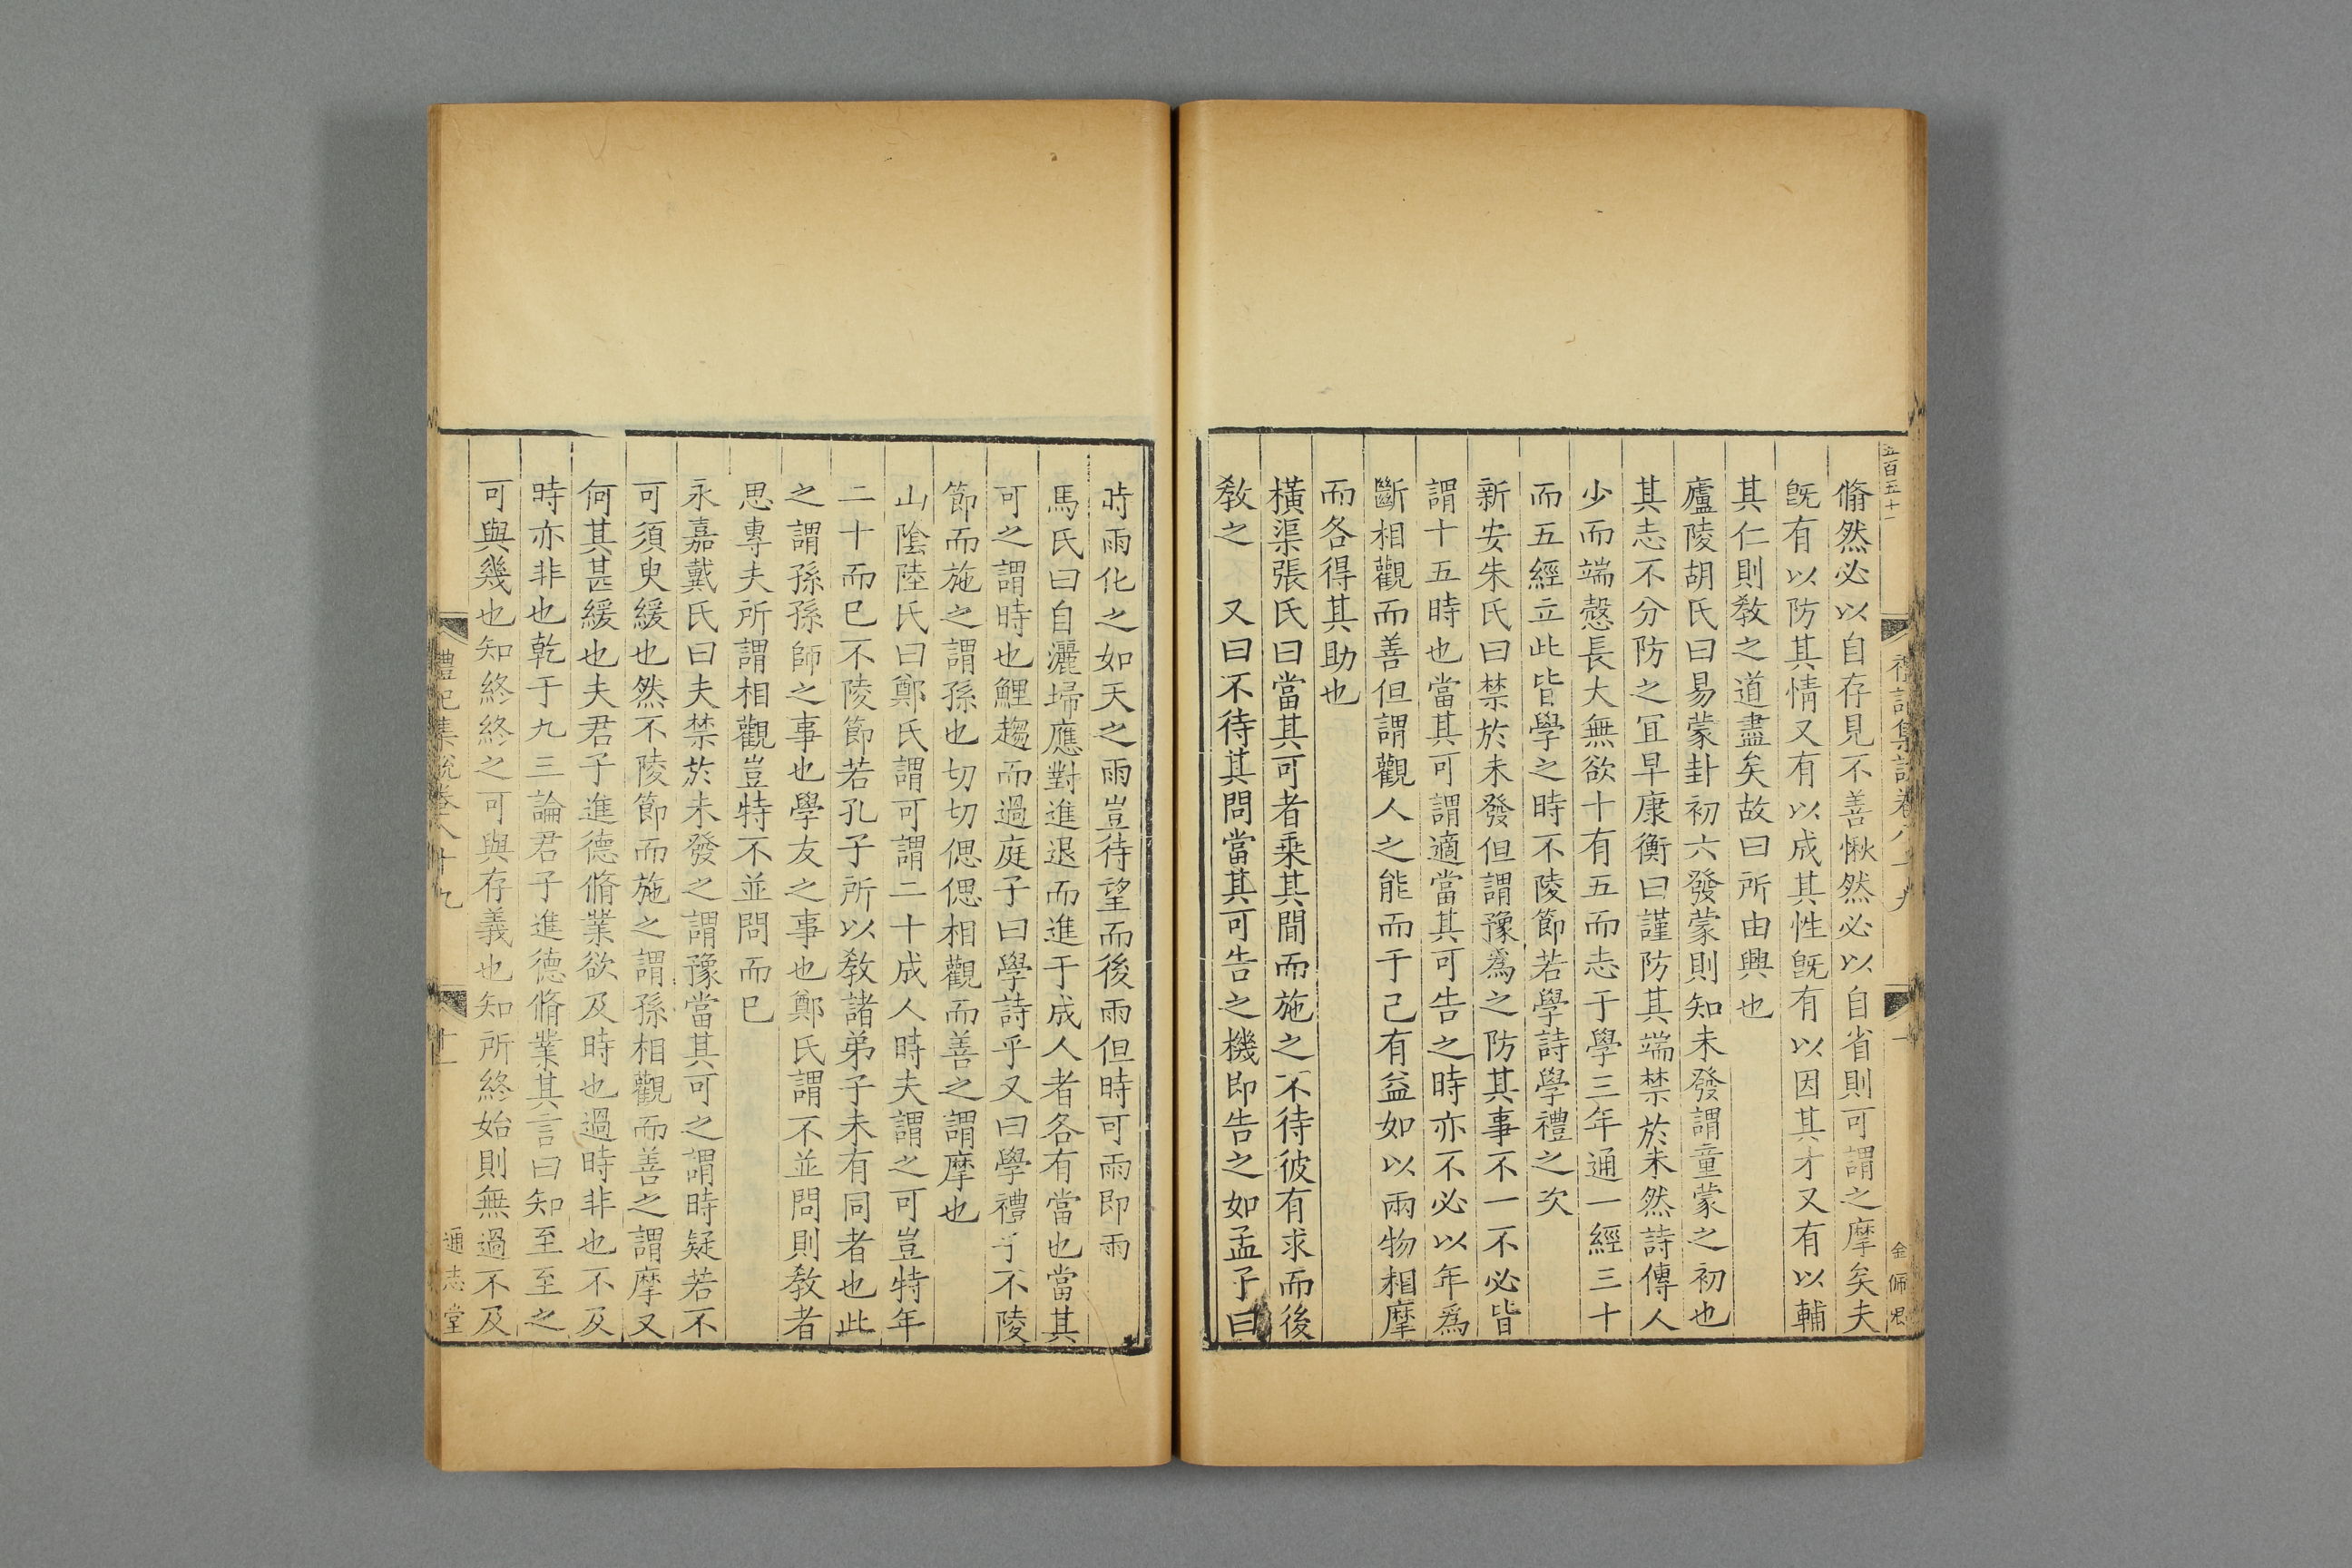 五百五十一
禮記集說卷八十九
金佩君
脩然必以自存見不善愀然必以自省則可謂之摩矣夫
旣有以防其情又有以成其性旣有以因其才又有以輔
其仁則敎之道盡矣故曰所由興也
廬陵胡氏曰易蒙卦初六發蒙則知未發謂童蒙之初也
其志不分防之宜早康衡曰謹防其端禁於未然詩傳人
少而端慤長大無欲十有五而志于學三年通一經三十
而五經立此皆學之時不陵節若學詩學禮之次
新安朱氏曰禁於未發但謂豫爲之防其事不一不必皆
謂十五時也當其可謂適當其可告之時亦不必以年爲
斷相觀而善但謂觀人之能而于己有益如以兩物相摩
而各得其助也
橫渠張氏曰當其可者乗其間而施之不待彼有求而後
敎之 又曰不待其問當其可告之機即告之如孟子曰
時雨化之如天之雨豈待望而後雨但時可雨即雨
馬氏曰自灑埽應對進退而進于成人者各有當也當其
可之謂時也鯉趨而過庭子曰學詩乎又曰學禮乎不陵
節而施之謂孫也切切偲偲相觀而善之謂摩也
山陰陸氏曰鄭氏謂可謂二十成人時夫謂之可豈特年
二十而已不陵節若孔子所以敎諸弟子未有同者也此
之謂孫孫師之事也學友之事也鄭氏謂不並問則敎者
思專夫所謂相觀豈特不並問而已
永嘉戴氏曰夫禁於未發之謂豫當其可之謂時疑若不
可須臾緩也然不陵節而施之謂孫相觀而善之謂摩又
何其甚緩也夫君子進德脩業欲及時也過時非也不及
時亦非也乾于九三論君子進德脩業其言曰知至至之
可與幾也知終終之可與存義也知所終始則無過不及
禮記集說卷八十九
十一
通志堂